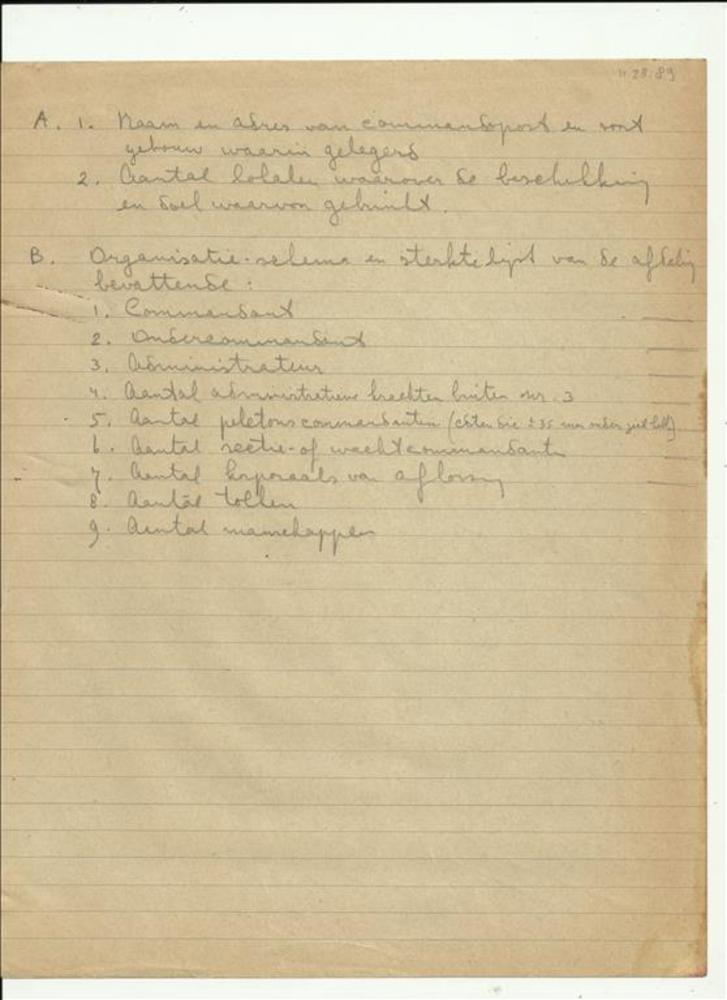 11 28.89
A. 1. Naam en adres van commandopost en soort
gebouw waarin gelegerd
2. Aantal lokalen waarover de beschikking
en doel waarvoor gebruikt.
B. Organisatie-schema en sterkte lijst van de afdeling
bevattende:
1. Commandant
2. Ondercommandant
3. Administrateur
4. Aantal administratieve krachten buiten nr. 3
5. Aantal peletons commandanten (die ± 35 man onder zich heeft)
6. Aantal sectie- of wachtcommandanten
7. Aantal korporaals van aflossing
8. Aantal tolken
9. Aantal manschappen